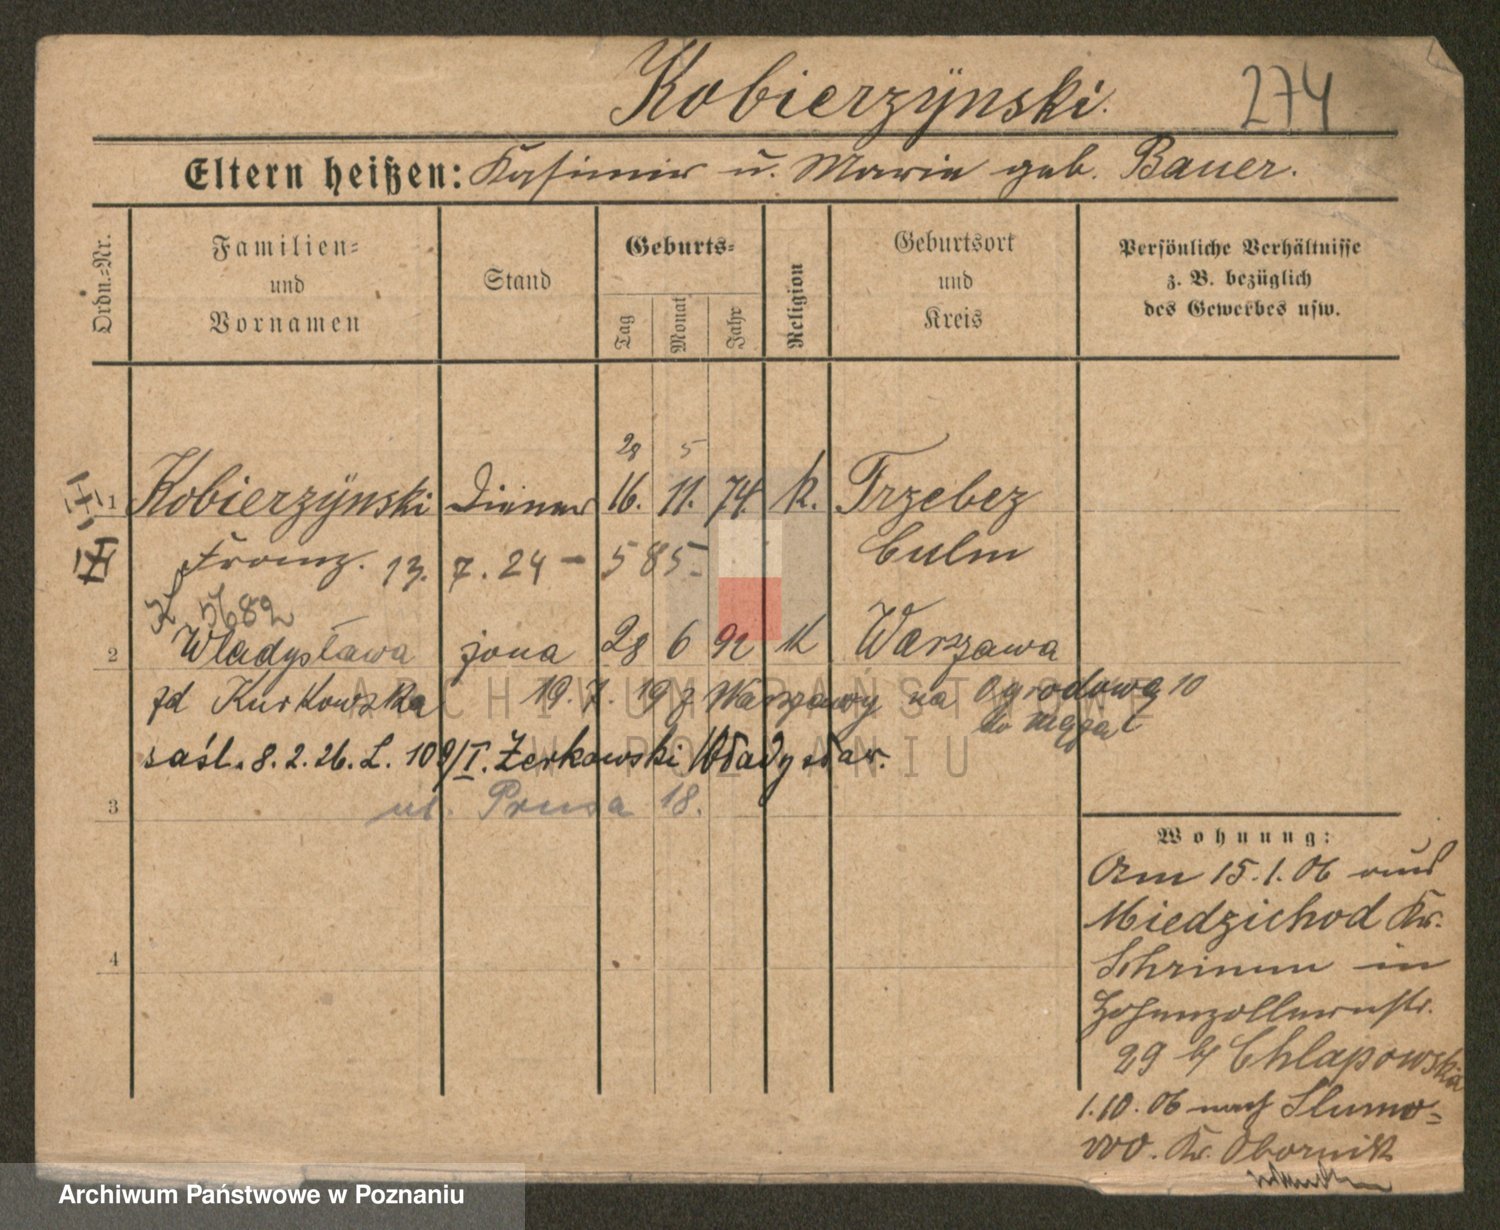 Kobierzÿnski.
274
Eltern heißen: Kasimir u. Marie geb. Bauer.
Ordn.-Nr.
Familien- und Vornamen
Stand
Geburts-
Tag
Monat
Jahr
Religion
Geburtsort und Kreis
Persönliche Verhältnisse z. B. bezüglich des Gewerbes usw.
28 5
1 Kobierzÿnski Diener 16. 11. 74. k. Trzebcz
Franz. 13. 7. 24 – 585 – Culm
5682
2 Władysława żona 28 6 92 k Warszawa
zd Kurkowska 19. 7. 19 z Warszawy na Ogrodową 10
do
zaśl. 8. 2. 26. L. 109/I. Żerkowski Władysław.
3 ul. Prusa 18.
4
Wohnung:
Am 15. 1. 06 aus
Miedzichod Kr.
Schrimm in
Hohenzollernstr.
29 b/ Chlapowska
1. 10. 06 nach Slumo-
wo. Kr. Obornik
ARCHIWUM PAŃSTWOWE
W POZNANIU
Archiwum Państwowe w Poznaniu